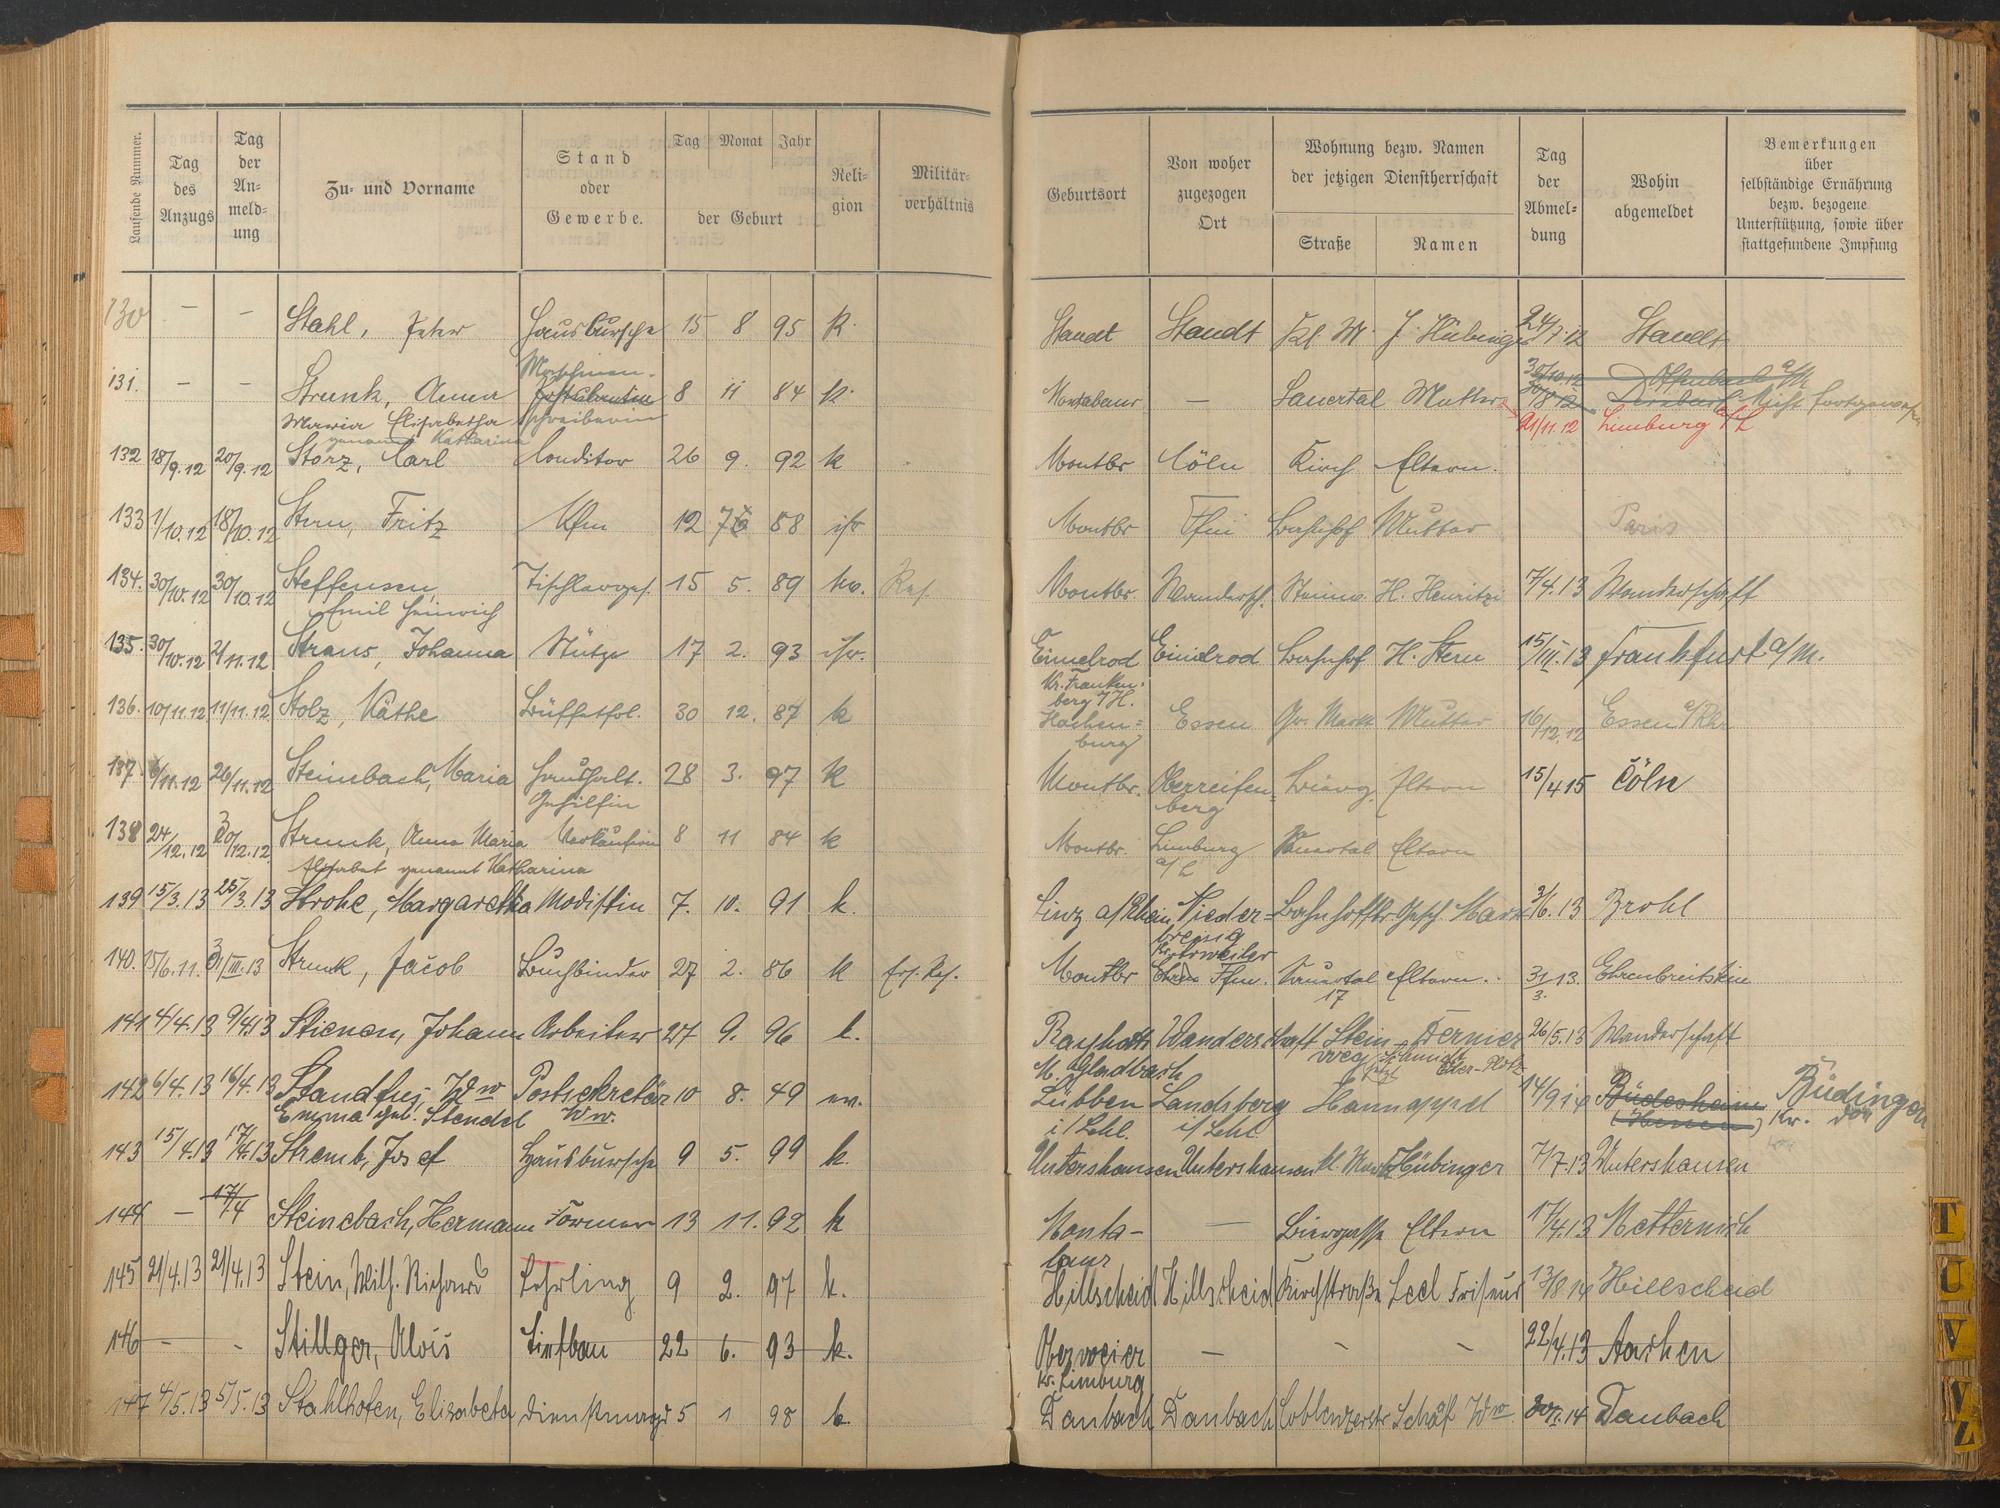 Laufende Nummer. | Tag des Anzugs | Tag der An- meld- ung | Zu- und Vorname | Stand oder Gewerbe. | Tag | Monat | Jahr | der Geburt | Reli- gion | Militär- verhältnis | Geburtsort | Von woher zugezogen Ort | Wohnung bezw. Namen der jetzigen Dienstherrschaft | Straße | Namen | Tag der Abmel- dung | Wohin abgemeldet | Bemerkungen über selbständige Ernährung bezw. bezogene Unterstützung, sowie über stattgefundene Impfung
130 — — Stahl, Peter Hausbursche 15 8 95 k. Staudt Staudt Kl. M. J. Hübinger 24/7.12 Staudt
Maschinen- 30/10.12 Offenbach a/M
131. — — Strunk, Anna 8 11 84 k. Montabaur — Sauertal Mutter
Maria Elisabetha schreiberin 21/11 12 Limburg a/L
genannt Katharina
132 18/9.12 20/9.12 Storz, Carl Conditor 26 9. 92 k Montbr Cöln Kirch Eltern.
133 1/10.12 18/10.12 Stern, Fritz Kfm 12 7 88 isr Montbr Ffm Bahnhof Mutter Paris
134. 30/10.12 30/10.12 Steffensen, Tischlerges. 15 5. 89 ev. Res. Montbr. Wandersch. Steinw. H. Henritzi 7/4.13 Wanderschaft
Emil Heinrich
135. 30/10.12 2/11.12 Straus, Johanna Stütze 17 2. 93 isr. Eimelrod Eimelrod Bahnhof H. Stern 15/III.13 Frankfurt a/M.
Kr. Franken- berg /H.
136. 10/11.12 11/11.12 Stolz, Käthe Büffetfrl. 30 12. 87 k Hachen= Essen Gr. Markt Mutter 16/12.12 Essen a/Rhr
burg
137 6/11.12 26/11.12 Steinbach, Maria Haushalt. 28 3. 97 k Montbr. Oberreifen= Bierg. Eltern 15/4 15 Cöln
Gehilfin berg
138 24/12.12 30/12.12 Strunk, Anna Maria Verkäuferin 8 11 84 k Montbr. Limburg Sauertal Eltern
Elisabet genannt Katharina a/L
139 15/3.13 25/3.13 Strohe, Margaretha Modistin 7. 10. 91 k. Linz a/Rhein Nieder= Bahnhofstr Gesch. Marx 3/6.13 Brohl
breisig
Kr. Ahrweiler
140. 15/6.11. 31/III.13 Strunk, Jacob Buchbinder 27 2. 86 k Ers. Res. Montbr Ffm. Sauertal Eltern. 31/3. 13. Ehrenbreitstein
17
141 4/4.13 9/4 13 Stienen, Johann Arbeiter 27 9. 96 k. Wanderschaft Stein- Fernier 26/5.13 Wanderschaft
M. Gladbach weg
142 6/4.13 16/4.13 Standfus, Ww Postsekretär 10 8. 49 ev. Lübben Landsberg Hannappel 14/9 14 Büdesheim Büdingen
Emma geb. Stendel Ww. i/Schl. i/Schl. (Hessen) Kr.
143 15/4.13 17/4.13 Stremb, Josef Hausbursche 9 5. 99 k. Untershausen Untershausen kl. Markt Hübinger 7/7.13 Untershausen
144 — 17/4 Steinebach, Hermann Former 13 11. 92 k Monta- — Biergasse Eltern 17/4.13 Metternich
baur
145 21/4.13 21/4.13 Stein, Wilh. Richard Lehrling 9 2. 97 k. Hillscheid Hillscheid Kirchstraße Leel Friseur 13/8 14 Hillscheid
146 — - Stillger, Alois Tiefbau 22 6. 93 k. Oberweier — - - 22/4.13 Aachen
Kr. Limburg
147 4/5.13 5/5.13 Stahlhofen, Elisabeta Dienstmagd 5 1 98 k. Daubach Daubach Coblenzerstr Schäf Ww 14 Daubach
T
U
V
V
Z